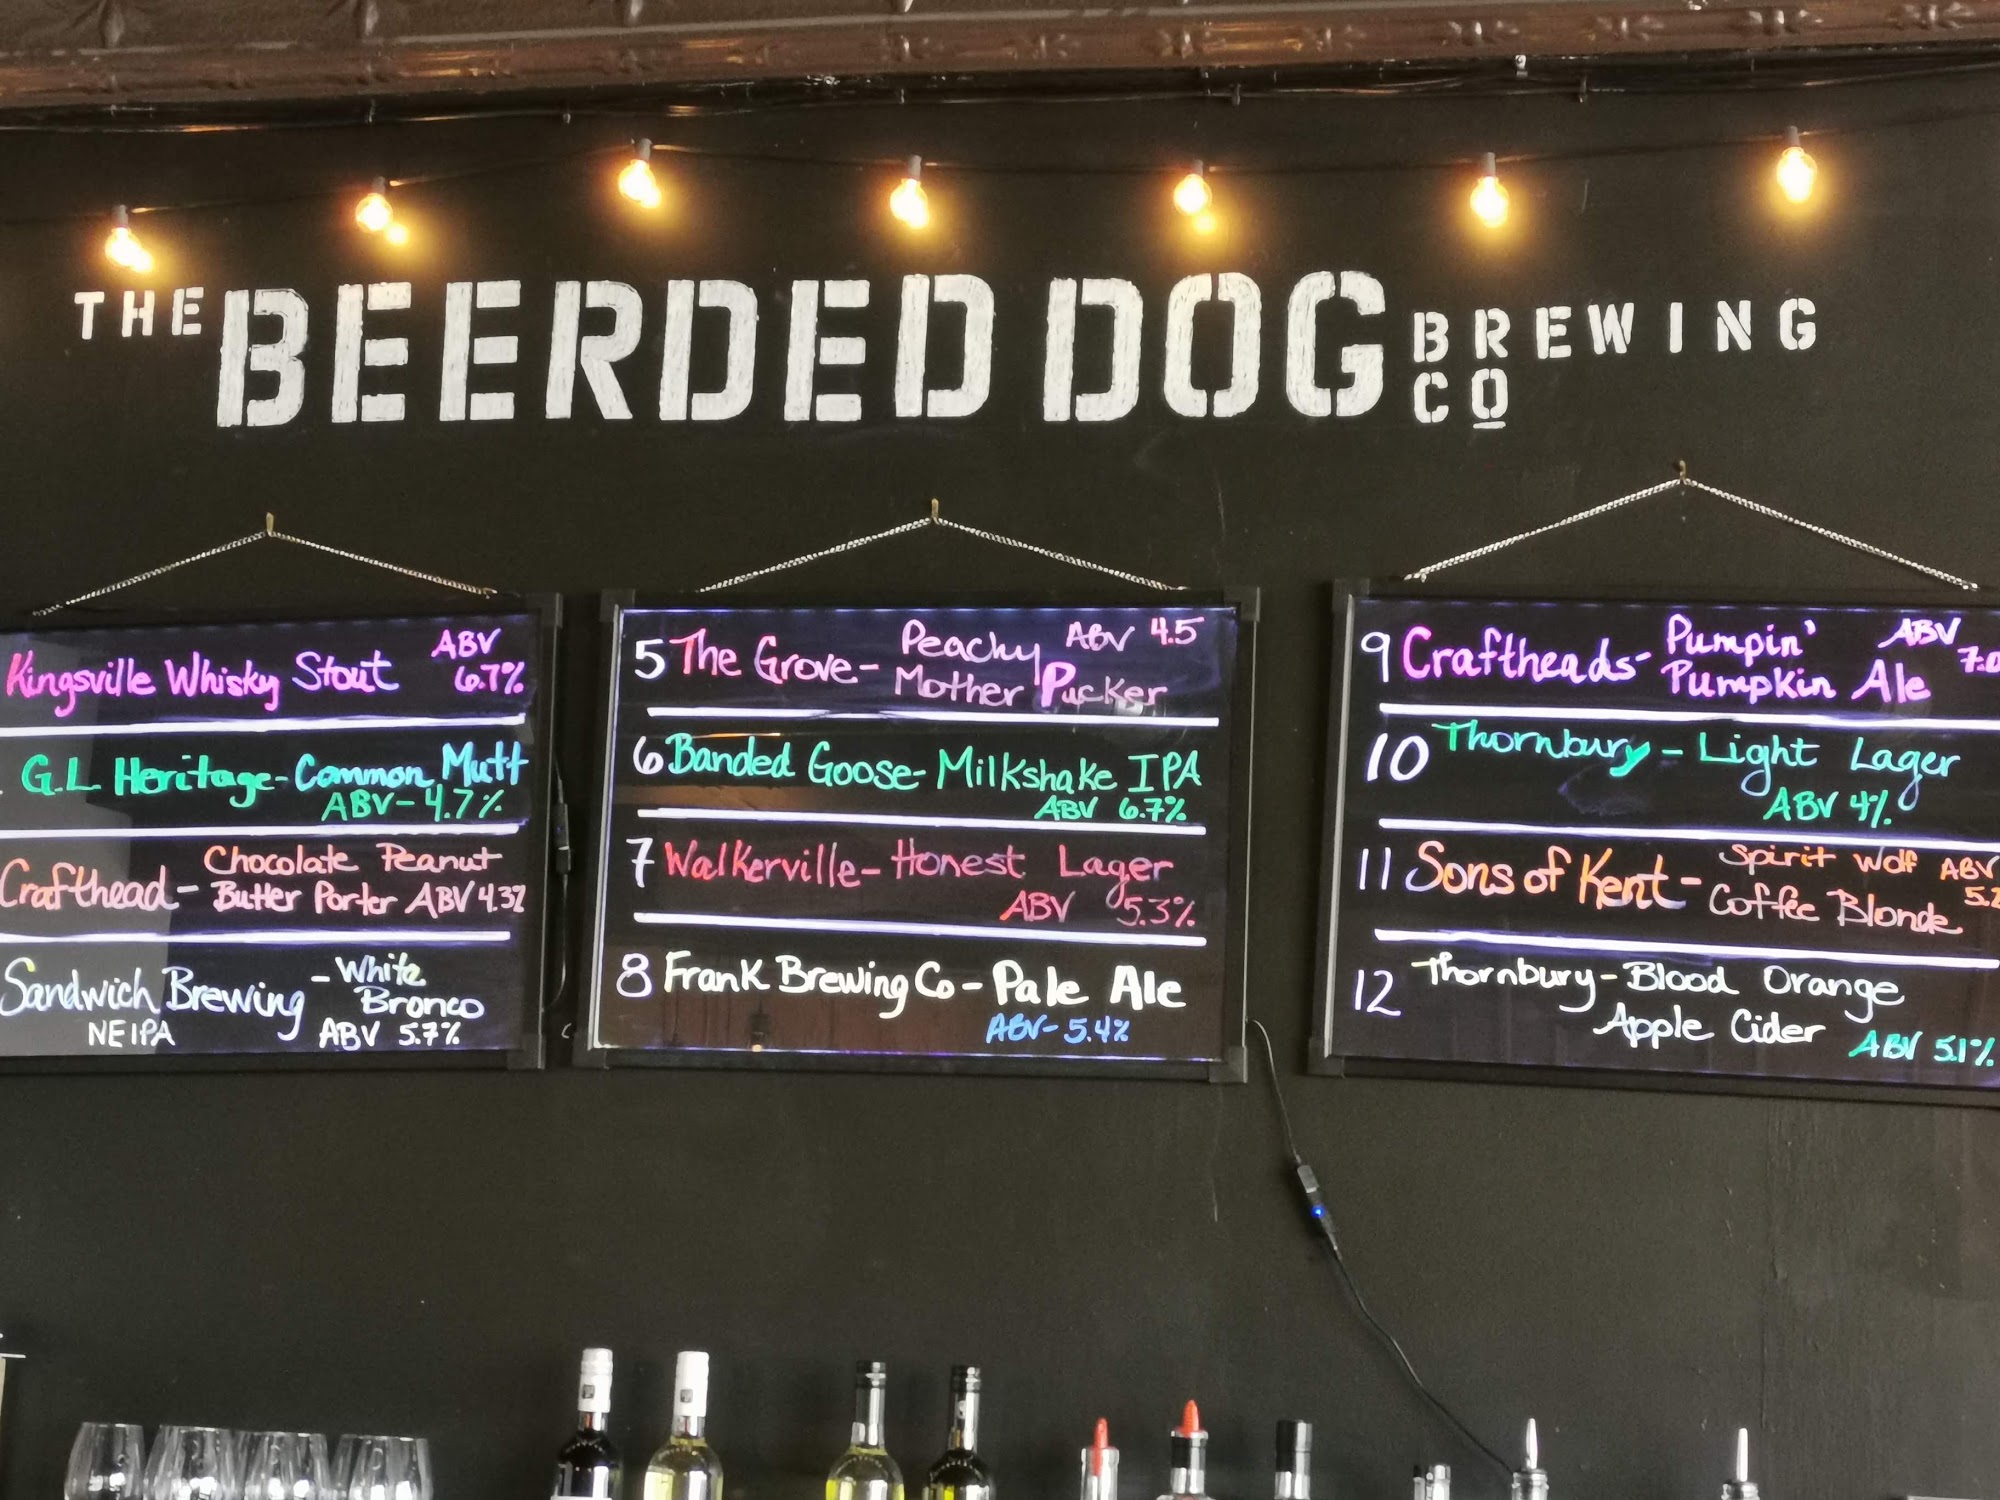 THE BEERDED DOG BREWING
CO
Kingsville Whisky Stout ABV
6.7%
G.L Heritage - Common Mutt
ABV - 4.7%
Crafthead - Chocolate Peanut
Butter Porter ABV 4.3%
Sandwich Brewing - White
Bronco
NEIPA ABV 5.7%
5 The Grove - Peachy ABV 4.5
Mother Pucker
6 Banded Goose - Milkshake IPA
ABV 6.7%
7 Walkerville - Honest Lager
ABV 5.3%
8 Frank Brewing Co - Pale Ale
ABV - 5.4%
9 Craftheads - Pumpin' ABV
Pumpkin Ale 7.0
10 Thornbury - Light Lager
ABV 4%
11 Sons of Kent - Spirit Wolf ABV
Coffee Blonde 5.2
12 Thornbury - Blood Orange
Apple Cider ABV 5.1%